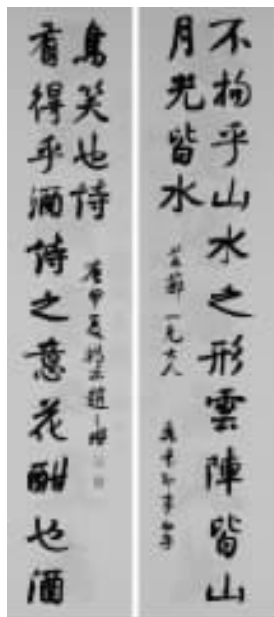 不拘乎山水之形雲陣皆山
月光皆水
有得乎酒詩之意花酣也酒
鳥笑也詩